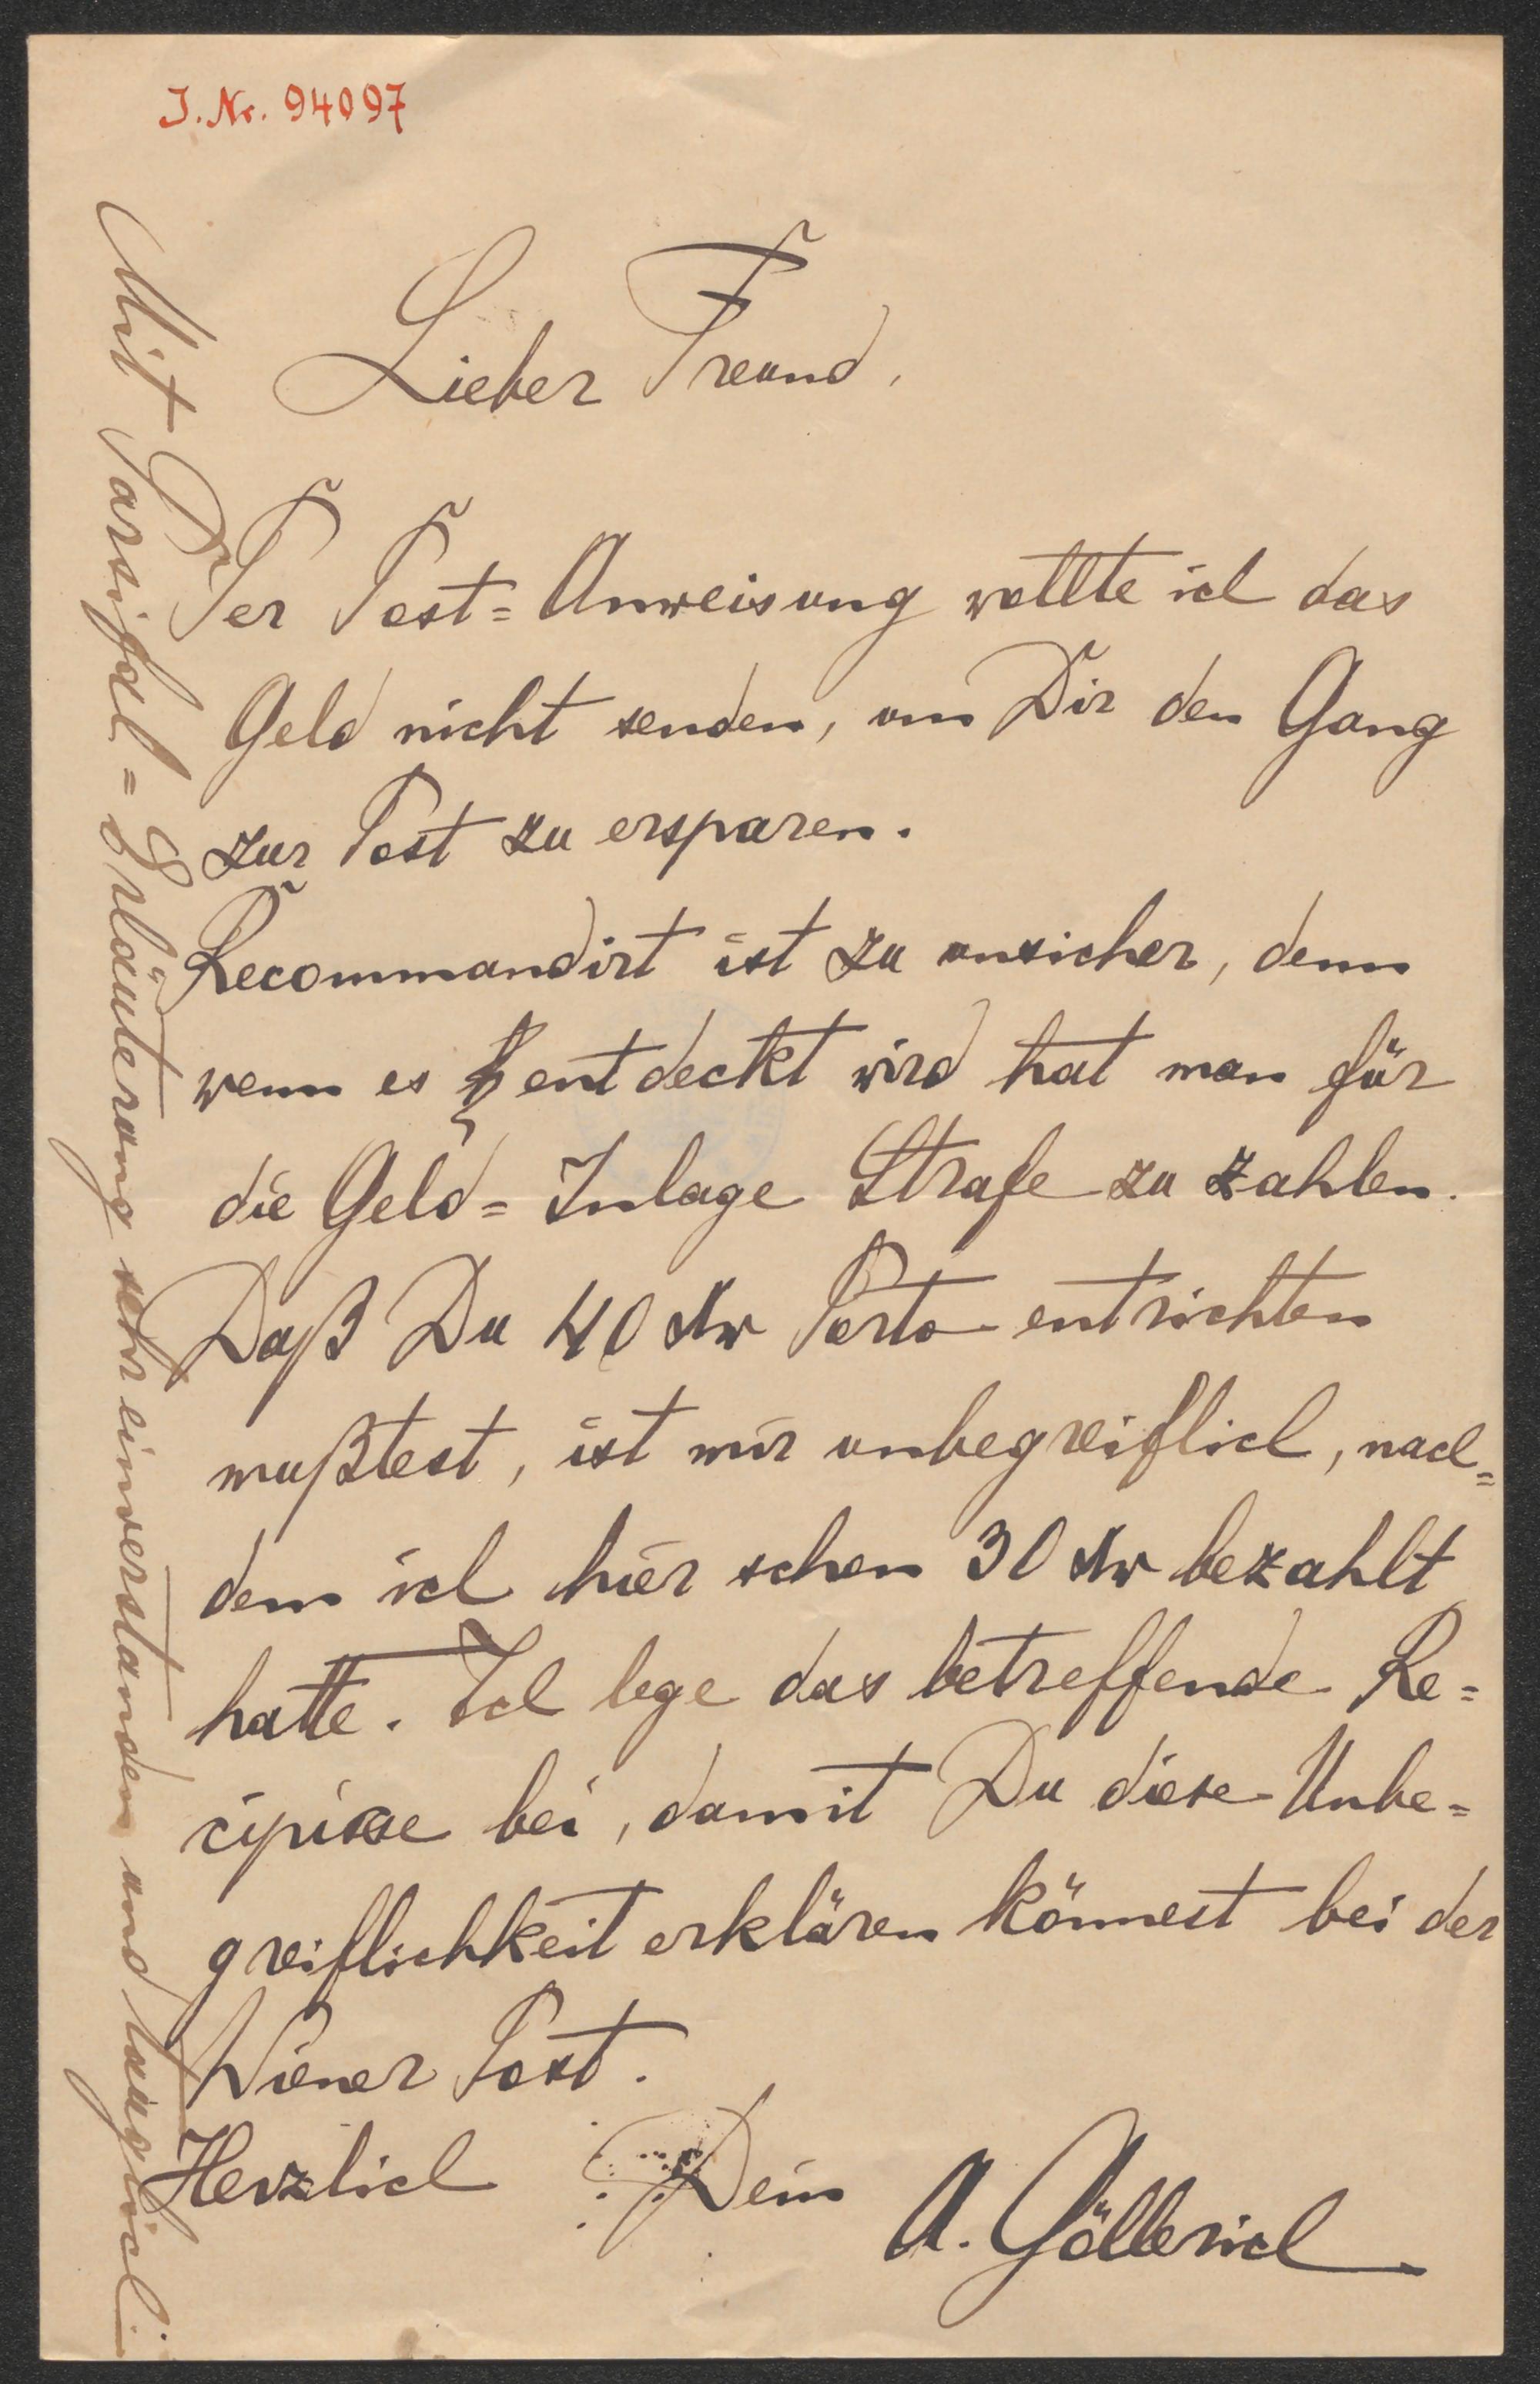 J. Nr. 94097
Lieber Freund,
Per Post=Anweisung wollte ich das
Geld nicht senden, um Dir den Gang
zur Post zu ersparen.
Recommandirt ist zu unsicher, denn
wenn es entdeckt wird hat man für
die Geld=Inlage Strafe zu zahlen.
Daß Du 40 Kr Porto entrichten
mußtest, ist mir unbegreiflich, nach=
dem ich hier schon 30 Kr bezahlt
hatte. Ich lege das betreffende Re=
cipisse bei, damit Du diese Unbe=
greiflichkeit erklären könnest bei der
Wiener Post.
Herzlich Dein
A. Göllerich
Mit Parsifal=Erläuterung sehr einverstanden und